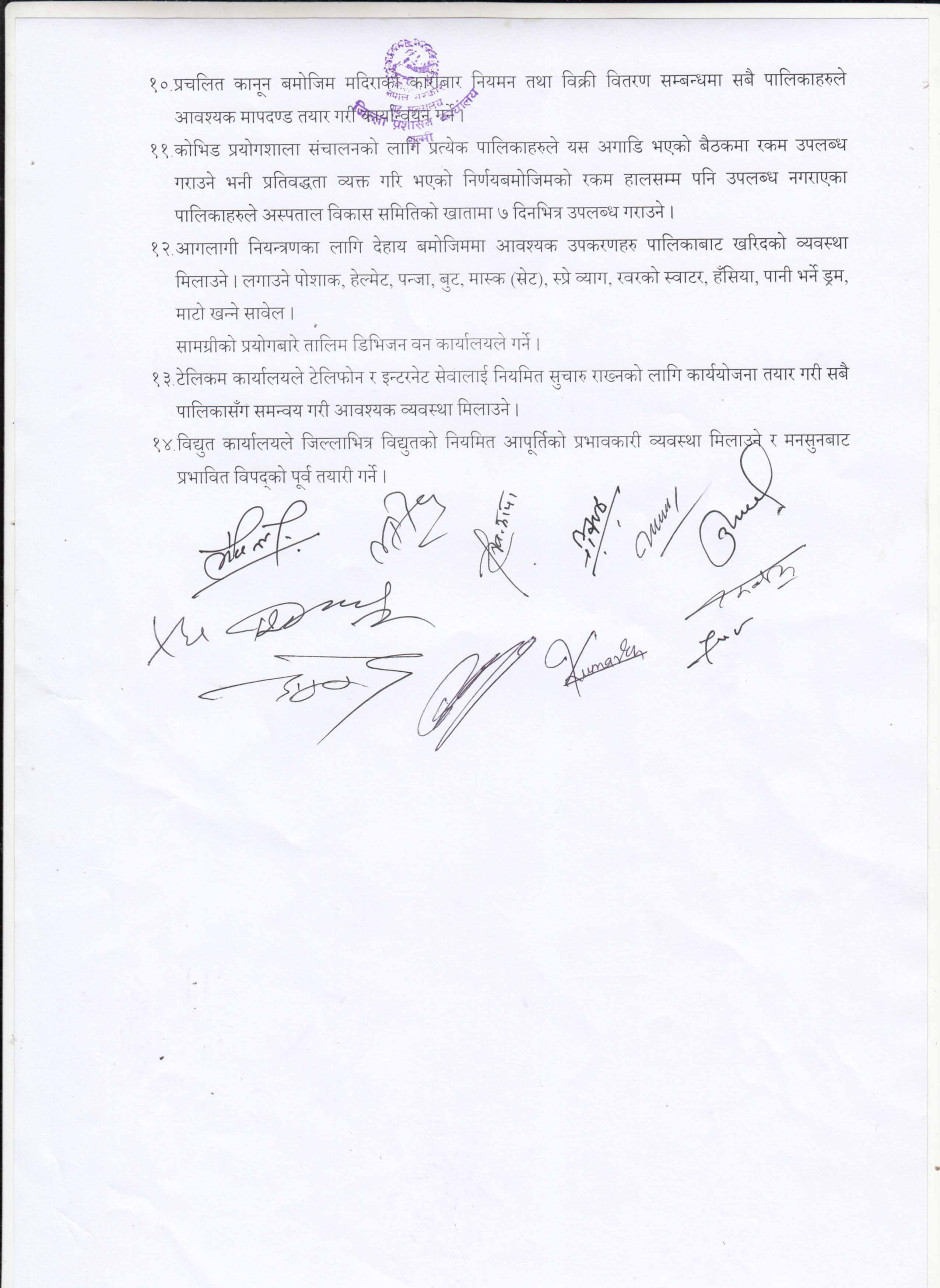 १०.प्रचलित कानून बमोजिम मदिराको कारोबार नियमन तथा विक्री वितरण सम्बन्धमा सबै पालिकाहरुले
आवश्यक मापदण्ड तयार गरी कार्यान्वयन गर्ने।
नेपाल सरकार
गृह मन्त्रालय
जिल्ला प्रशासन कार्यालय
११.कोभिड प्रयोगशाला संचालनको लागि प्रत्येक पालिकाहरुले यस अगाडि भएको बैठकमा रकम उपलब्ध
गराउने भनी प्रतिवद्धता व्यक्त गरि भएको निर्णयबमोजिमको रकम हालसम्म पनि उपलब्ध नगराएका
पालिकाहरुले अस्पताल विकास समितिको खातामा ७ दिनभित्र उपलब्ध गराउने।
१२.आगलागी नियन्त्रणका लागि देहाय बमोजिममा आवश्यक उपकरणहरु पालिकाबाट खरिदको व्यवस्था
मिलाउने। लगाउने पोशाक, हेल्मेट, पन्जा, बुट, मास्क (सेट), स्प्रे व्याग, रवरको स्वाटर, हँसिया, पानी भर्ने ड्रम,
माटो खन्ने सावेल।
सामग्रीको प्रयोगबारे तालिम डिभिजन वन कार्यालयले गर्ने।
१३.टेलिकम कार्यालयले टेलिफोन र इन्टरनेट सेवालाई नियमित सुचारु राख्नको लागि कार्ययोजना तयार गरी सबै
पालिकासँग समन्वय गरी आवश्यक व्यवस्था मिलाउने।
१४.विद्युत कार्यालयले जिल्लाभित्र विद्युतको नियमित आपूर्तिको प्रभावकारी व्यवस्था मिलाउने र मनसुनबाट
प्रभावित विपद्को पूर्व तयारी गर्ने।